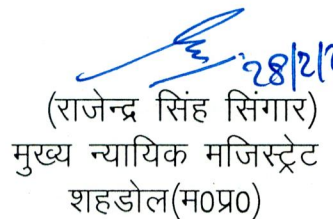 28/2/2
(राजेन्द्र सिंह सिंगार)
मुख्य न्यायिक मजिस्ट्रेट
शहडोल(म0प्र0)